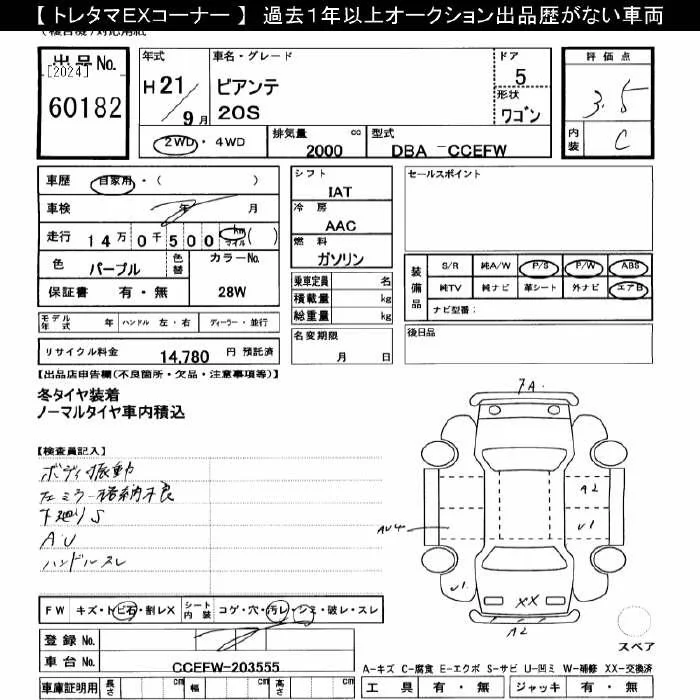 【トレタマEXコーナー】 過去1年以上オークション出品歴がない車両
出品No.
[2024]
60182
年式
H 21 / 9 月
車名・グレード
ビアンテ
20S
ドア
5
形状
ワゴン
評価点
3.5
内装
C
2WD ・ 4WD
排気量 cc
2000
型式
DBA －CCEFW
車歴 自家用・( )
車検 年 月
走行 14万0千500 km マイル ( )
色 パープル
色替
カラーNo.
28W
保証書 有・無
モデル年式 年 ハンドル 左・右 ディーラー・並行
リサイクル料金 14,780 円 預託済
シフト
IAT
冷房
AAC
燃料
ガソリン
乗車定員 名
積載量 kg
総重量 kg
名変期限
月 日
セールスポイント
装備品
S/R 純A/W P/S P/W ABS
純TV 純ナビ 革シート 外ナビ エアB
ナビ型番:
後日品
【出品店申告欄(不良箇所・欠品・注意事項等)】
冬タイヤ装着
ノーマルタイヤ車内積込
【検査員記入】
ボディ振動
左ミラー格納不良
下廻りS
A.U
ハンドルスレ
7A.
A2
U1
AU4
U1
XX
A2
スペア
FW キズ・トビ石・割レX
シート内装 コゲ・穴・汚レ・シミ・破レ・スレ
登録No.
車台No. CCEFW-203555
車庫証明用 長さ cm 幅 cm 高さ cm
A-キズ C-腐食 E-エクボ S-サビ U-凹ミ W-補修 XX-交換済
工具 有・無 ジャッキ 有・無